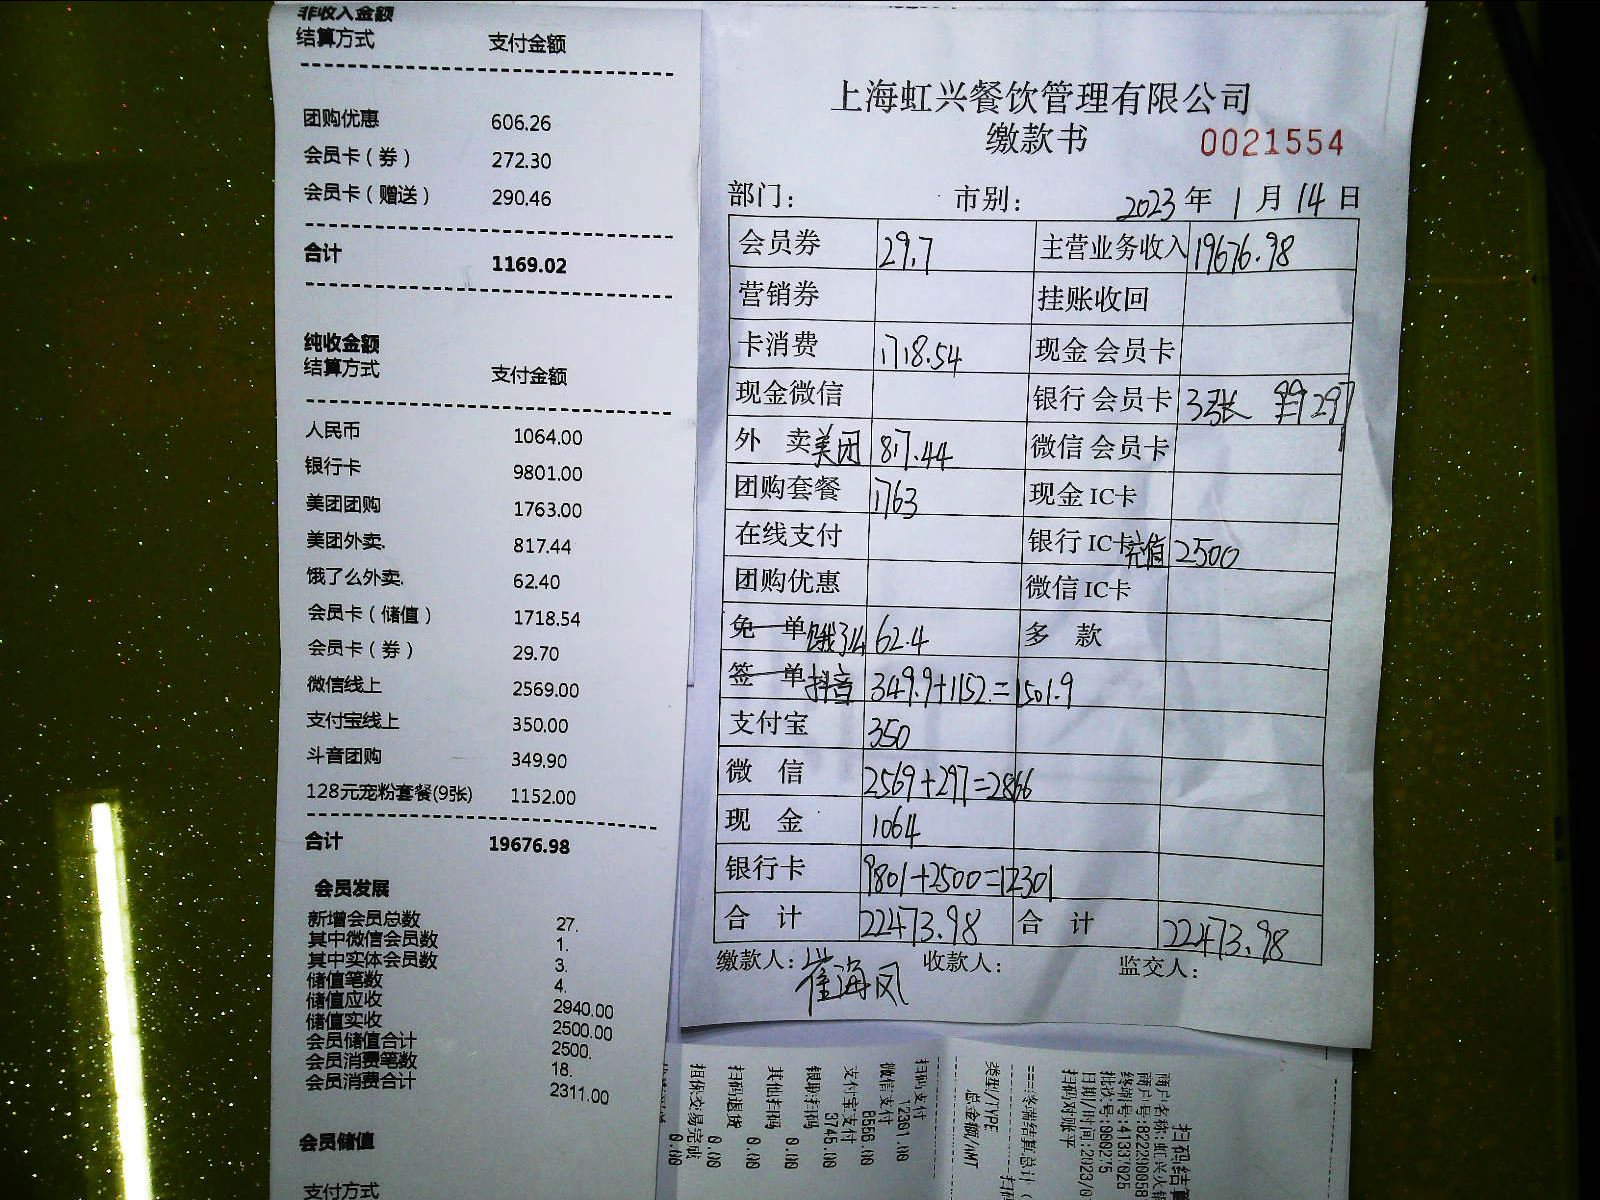 非收入金额
结算方式 支付金额
团购优惠 606.26
会员卡（券） 272.30
会员卡（赠送） 290.46
合计 1169.02
纯收金额
结算方式 支付金额
人民币 1064.00
银行卡 9801.00
美团团购 1763.00
美团外卖. 817.44
饿了么外卖. 62.40
会员卡（储值） 1718.54
会员卡（券） 29.70
微信线上 2569.00
支付宝线上 350.00
斗音团购 349.90
128元宠粉套餐(9张) 1152.00
合计 19676.98
会员发展
新增会员总数 27.
其中微信会员数 1.
其中实体会员数 3.
储值笔数 4.
储值应收 2940.00
储值实收 2500.00
会员储值合计 2500.
会员消费笔数 18.
会员消费合计 2311.00
会员储值
支付方式
上海虹兴餐饮管理有限公司
缴款书 0021554
部门： 市别： 2023 年 1 月 14 日
会员券 29.7 主营业务收入 19676.98
营销券 挂账收回
卡消费 1718.54 现金 会员卡
现金微信 银行 会员卡 3张 297
外 卖 美团 817.44 微信 会员卡
团购套餐 1763 现金 IC卡
在线支付 银行 IC卡 充值 2500
团购优惠 微信 IC卡
免 单 饿了么 62.4 多 款
签 单 抖音 349.9+1152.=1501.9
支付宝 350
微 信 2569+297=2866
现 金 1064
银行卡 9801+2500=12301
合 计 22473.98 合 计 22473.98
缴款人：崔海凤 收款人： 监交人：
扫码支付
12301.00
微信支付
8556.00
支付宝支付
3745.00
银联扫码
0.00
其他扫码
0.00
扫码退货
0.00
担保交易完成
0.00
类型/TYPE 总金额/AMT
扫码对账平